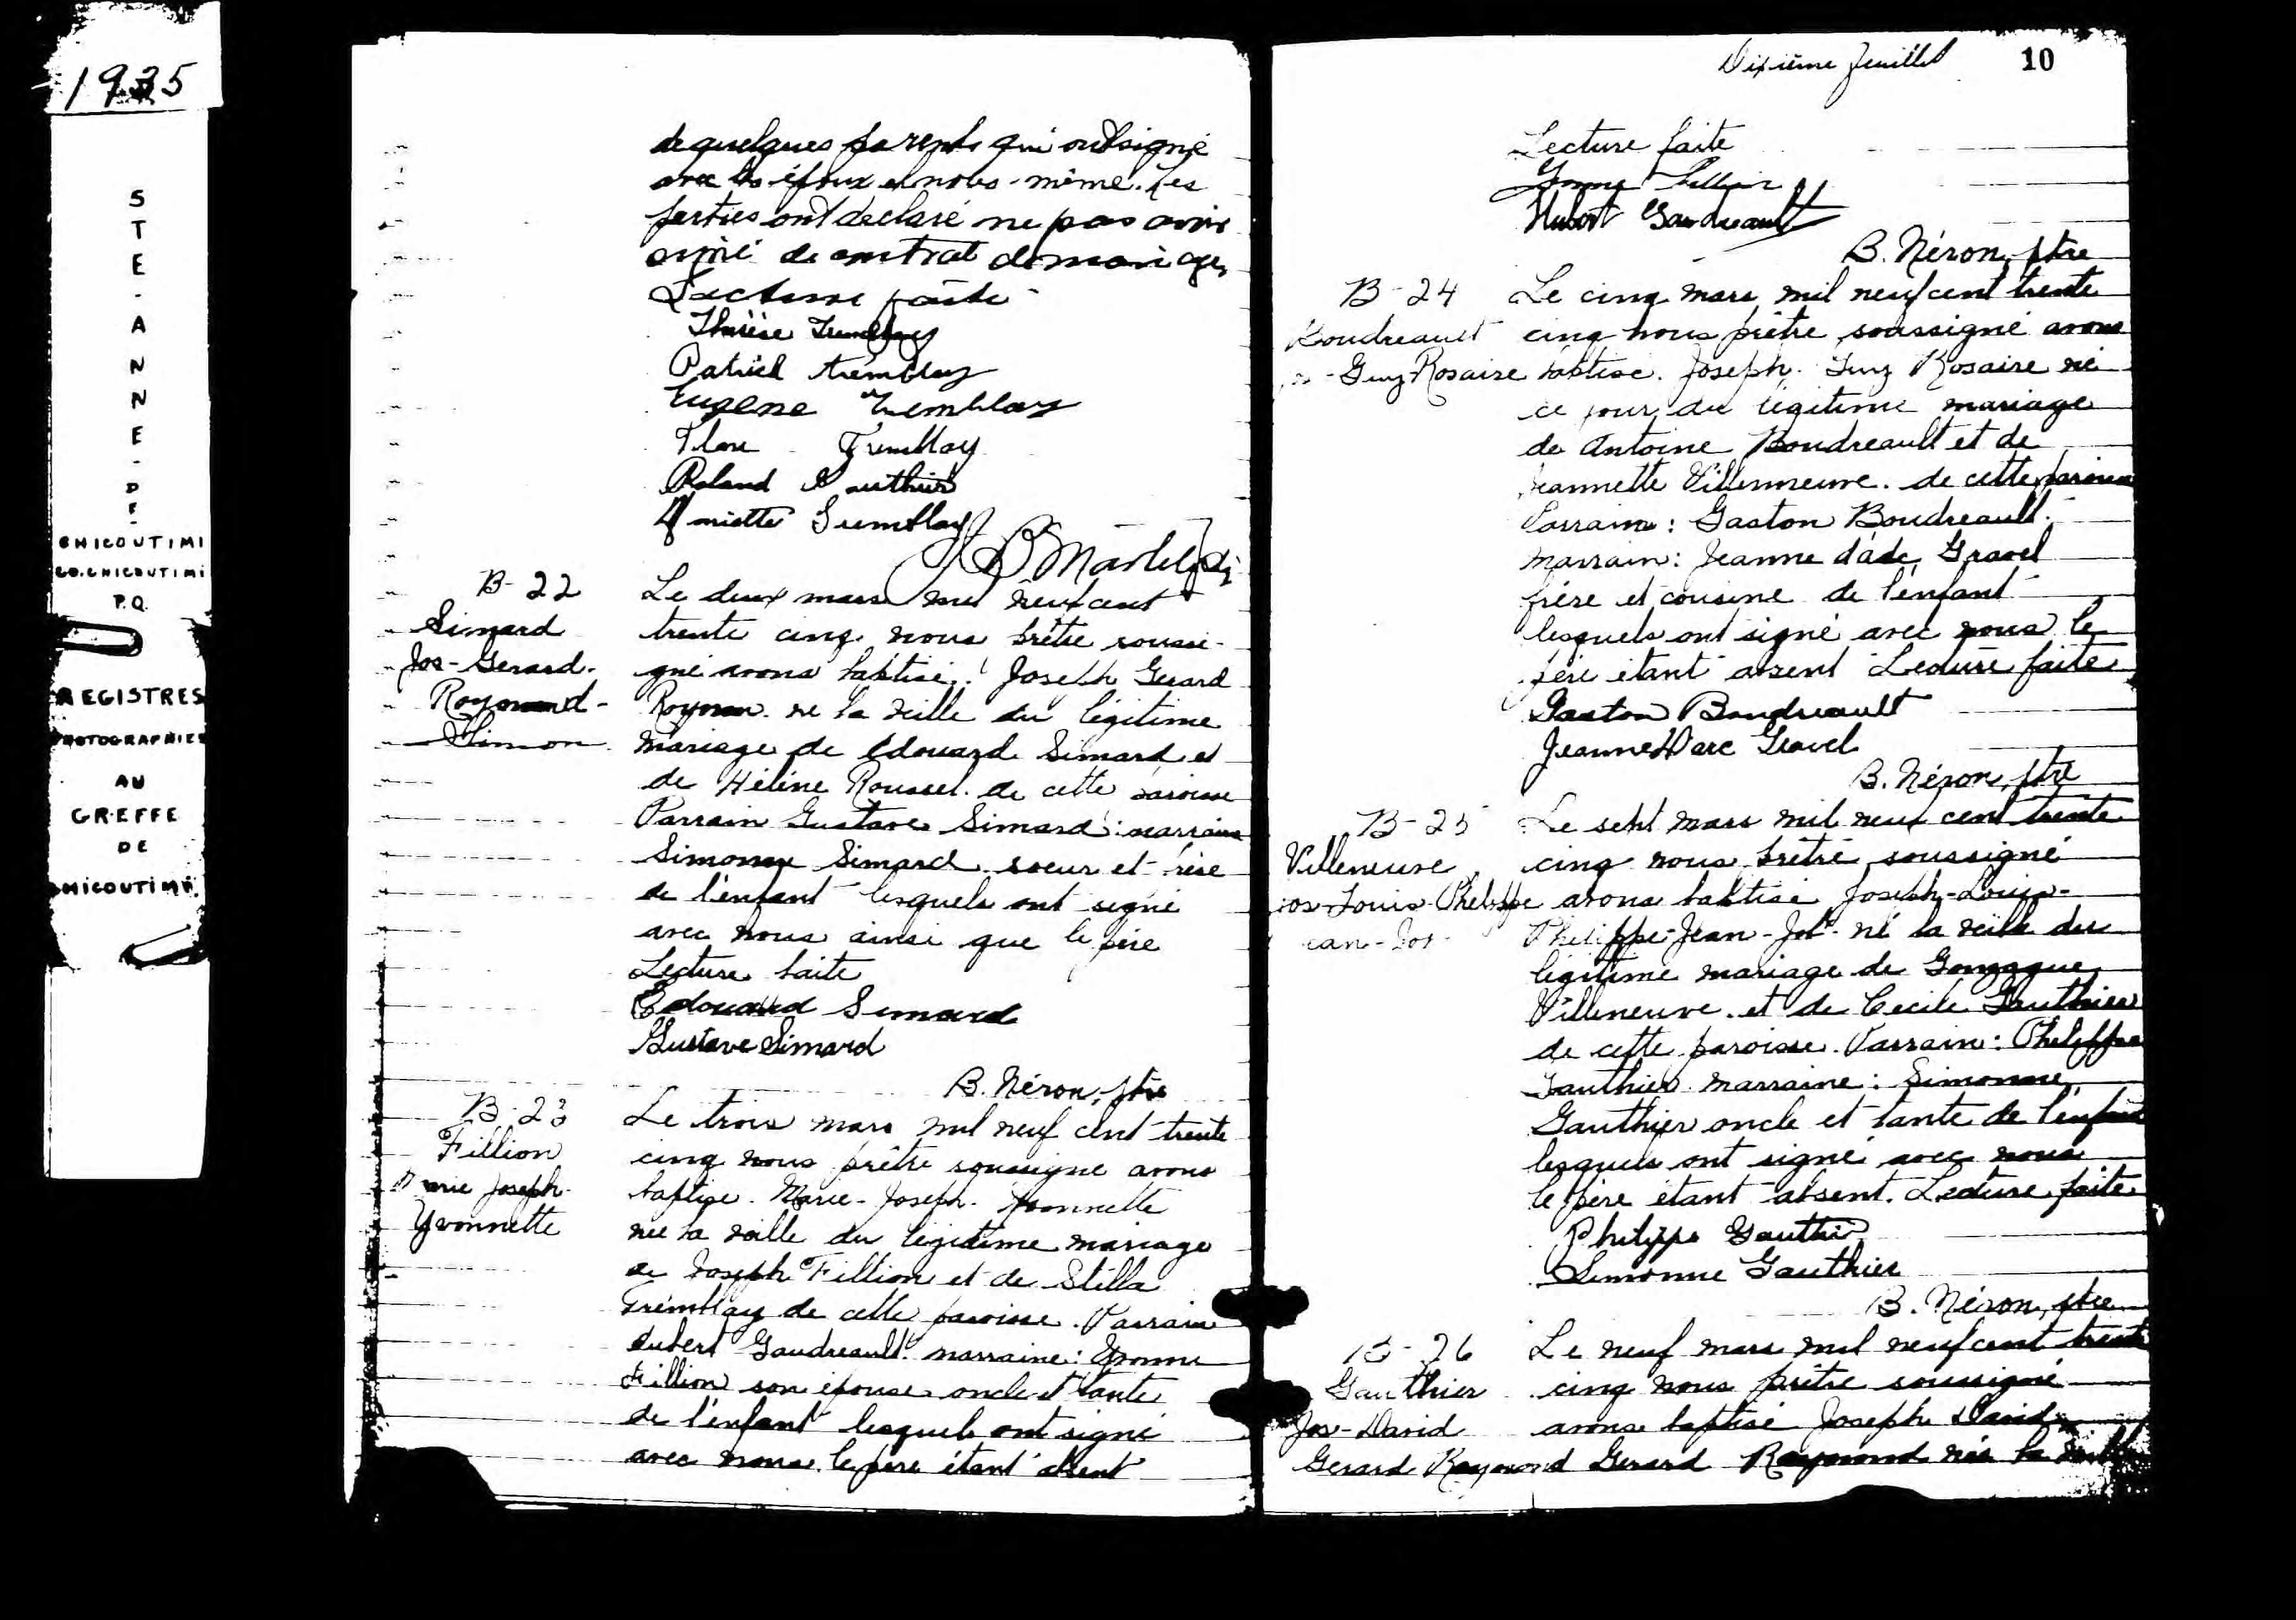 1935
STE-ANNE-DE-
CHICOUTIMI
CO. CHICOUTIMI
P.Q.
REGISTRES
PHOTOGRAPHIES
AU
GREFFE
DE
CHICOUTIMI.
de quelques parents qui ont signé
avec les époux et nous-même. Les
parties ont déclaré ne pas avoir
signé de contrat de mariage,
Lecture faite
Thérèse Tremblay
Patrick tremblay
Eugène Tremblay
Tremblay
Roland Gauthier
Tremblay
B-22
Simard
Jos-Gerard-
Raymond-
Simon
Le deux mars mil neuf cent
trente cinq nous prêtre soussi-
gné avons baptisé. Joseph Gerard
né la veille du légitime
mariage de Edouard Simard et
de Hélène Roussel. de cette paroisse
Parrain Gustave Simard: marraine
Simonne Simard soeur et frère
de l'enfant lesquels ont signé
avec nous ainsi que le père
Lecture faite
Edouard Simard
Gustave Simard
B. Néron, ptre
B-23
Fillion
Marie Joseph-
Yvonnette
Le trois mars mil neuf cent trente
cinq nous prêtre soussigné avons
baptisé. Marie-Joseph. Yvonnette
née la veille du légitime mariage
de Joseph Fillion et de Stella
Tremblay de cette paroisse. Parrain
Hubert Gaudreault. marraine: Yvonne
Fillion son épouse oncle et tante
de l'enfant lesquels ont signé
avec nous. le père étant absent
Dixième feuillet 10
Lecture faite
Yvonne Fillion
Hubert Gaudreault
B. Néron, ptre
B-24
Boudreault
Guy Rosaire
Le cinq mars mil neuf cent trente
cinq nous prêtre soussigné avons
baptisé. Joseph. Guy Rosaire né
ce jour, du légitime mariage
de Antoine Boudreault et de
Jeannette Villenneuve. de cette paroisse
Parrain: Gaston Boudreault.
marrain: Jeanne Gravel
frère et cousine de l'enfant
lesquels ont signé avec nous le
père étant absent Lecture faite
Gaston Boudreault
Jeanne D'arc Gravel
B. Néron, ptre
B-25
Villeneuve
Jos-Louis-Philippe
Jean-Jos-
Le sept mars mil neuf cent trente
cinq nous prêtre soussigné
avons baptisé Joseph-Louis-
Philippe-Jean-Jos- né la veille du
légitime mariage de Gonzague
Villeneuve. et de Cecile Gauthier
de cette paroisse. Parrain: Philippe
Gauthier. marraine: Simonne
Gauthier oncle et tante de l'enfant
lesquels ont signé avec nous
le père étant absent. Lecture faite
Philippe Gauthier
Simonne Gauthier
B. Néron, ptre
B-26
Gauthier
Jos-David
Gerard Raymond
Le neuf mars mil neuf cent trente
cinq nous prêtre soussigné
avons baptisé Joseph David
Gerard Raymond né la veille